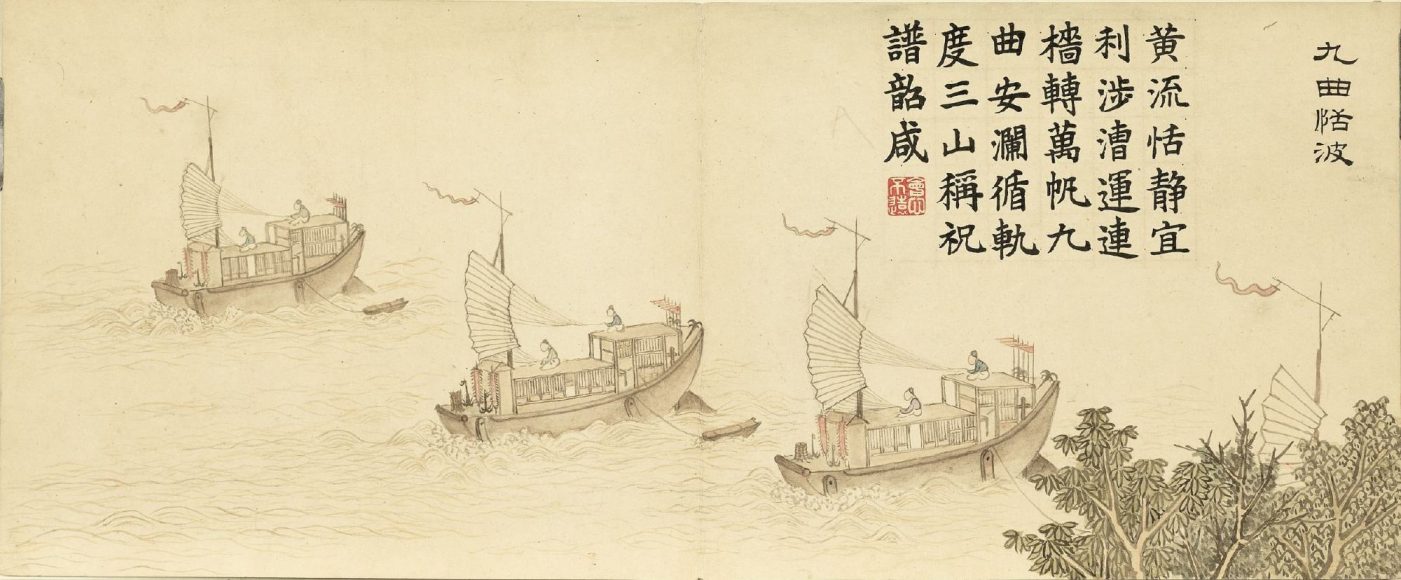 九曲恬波
黄流恬静宜
利涉漕運連
檣轉萬帆九
曲安瀾循軌
度三山稱祝
譜韶咸
會心不遠